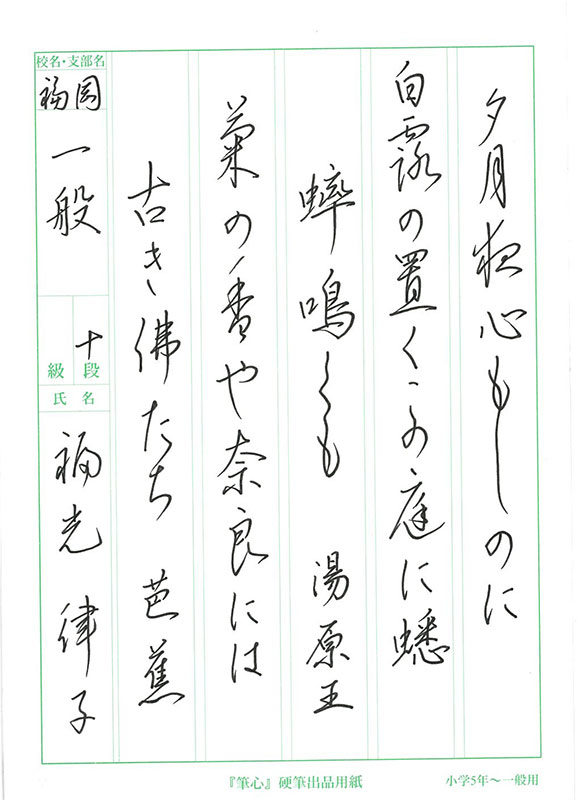 夕月夜心もしのに
白露の置くこの庭に蟋
蟀鳴くも 湯原王
菊の香や奈良には
古き佛たち 芭蕉
校名・支部名
福岡
一般
十段
級
氏名
福光 律子
『筆心』硬筆出品用紙
小学5年～一般用